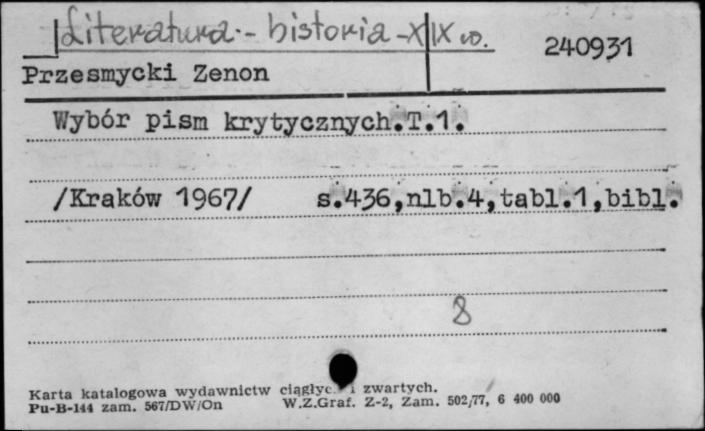 Literatura - historia - XIX w.
240931
Przesmycki Zenon
Wybór pism krytycznych.T.1.
/Kraków 1967/ s.436,nlb.4,tabl.1,bibl.
8
Karta katalogowa wydawnictw i zwartych.
Pu-B-144 zam. 567/DW/On W.Z.Graf. Z-2, Zam. 502/77, 6 400 000